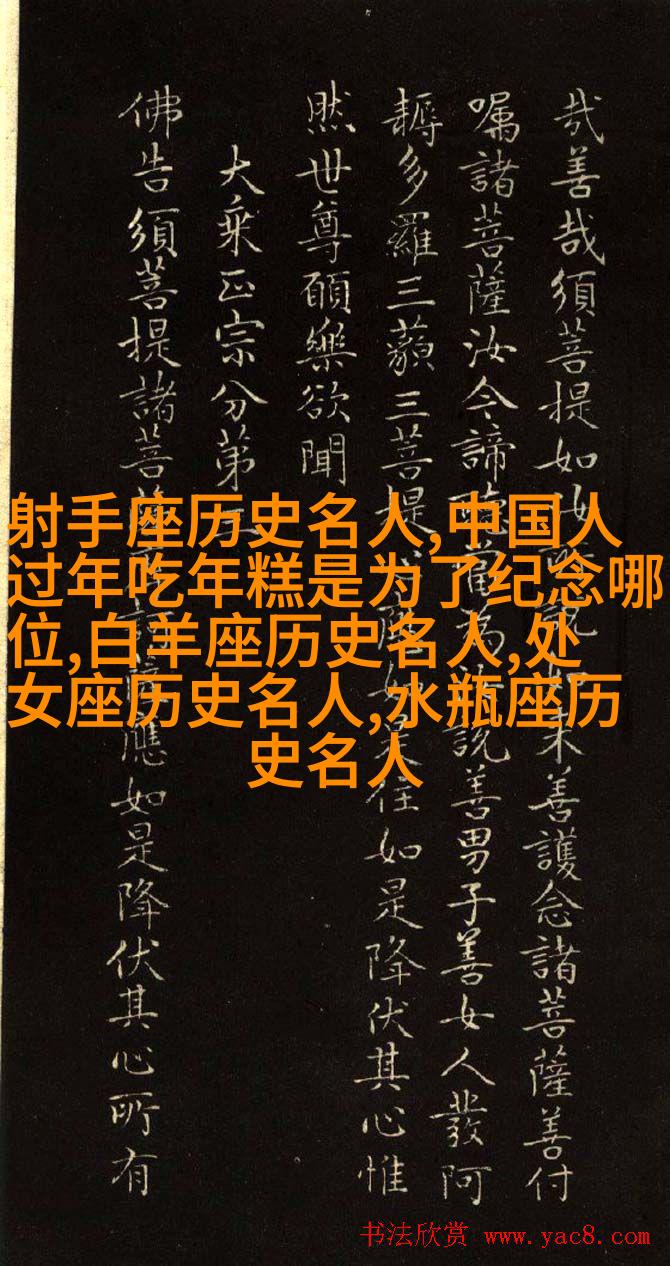 哉善哉須菩提如汝說如來善護念諸菩薩善付
囑諸菩薩汝今諦聽當為說善男子善女人發阿
耨多羅三藐三菩提住如是降伏其心惟
然世尊願樂欲聞
大乘正宗分第
佛告須菩提諸菩薩應如是降伏其心所有
射手座历史名人,中国人
过年吃年糕是为了纪念哪
位,白羊座历史名人,处
女座历史名人,水瓶座历
史名人
书法欣赏 www.yac8.com